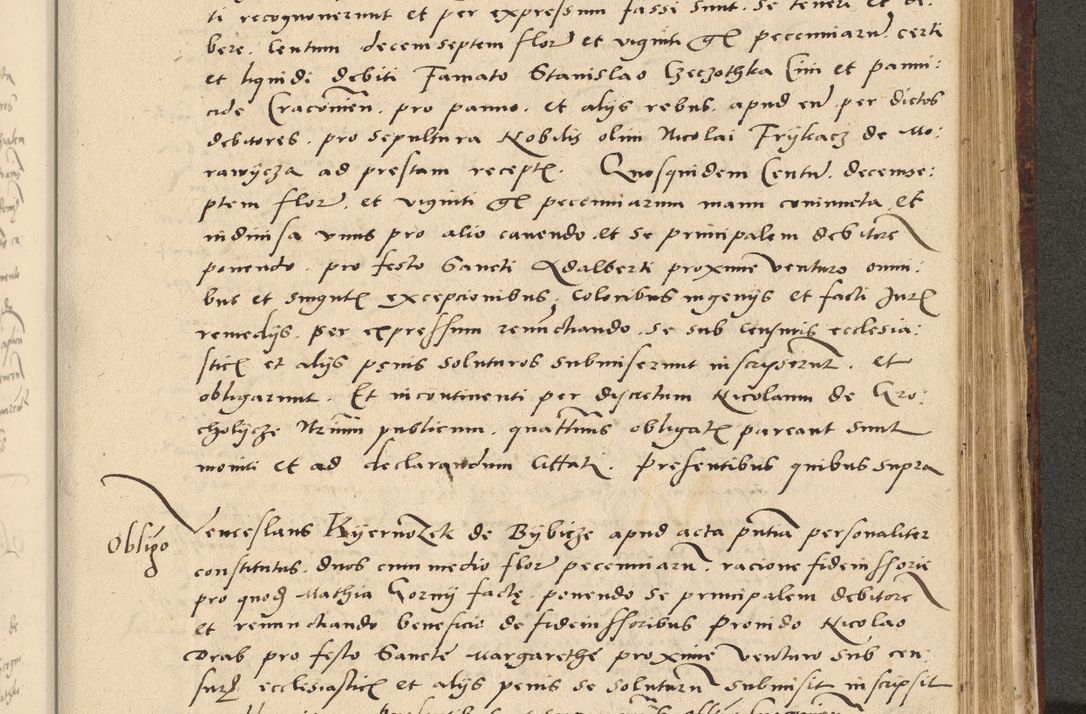 ti recognoverunt et per expressum fassi sunt. se teneri et de:
bere. Centum decemseptem flor et viginti gl pecuniaru. certi
et liquidi debiti Famato Stanislao Czeczothka Civi et panni:
cide Cracovien. pro panno. et alijs rebus. apud eu per dictos
debitores. pro sepultura Nobilis olim Nicolai Frykacz de Mo:
rawycza ad prestam recept. Quosquidem Centu. decemse:
ptem flor. et viginti gl pecuniarum manu coniuncta et
indivisa unus pro alio cavendo et se principalem debitore
ponendo. pro festo Sancti Adalberti proxime venturo omni:
bus et singulis excepcionibus. coloribus ingenijs et facti Juris
remedijs. per expressum renunctiando. se sub censuris ecclesia:
stic et alijs penis soluturos submiserunt inscripserunt. et
obligarunt. Et incontinenti per discretum Nicolaum de Gro:
cholycze Notarium publicum. quattenus obligatis pareant sunt
moniti et ad declarandum Cittati. Presentibus quibus supra
Obligo
Venceslaus Kyernozek de Bybicze apud acta pntia personaliter
constitutus. duos cum medio flor pecuniaru. racione fideiussorie
pro quod Mathia Gorny facte. ponendo se principalem debitore
et renunctiando beneficio de fideiussoribus Provido Nicolao
Drab pro festo Sancte Margarethe proxime venturo sub cen:
suris ecclesiastic et alijs penis se soluturu submisit inscripsit